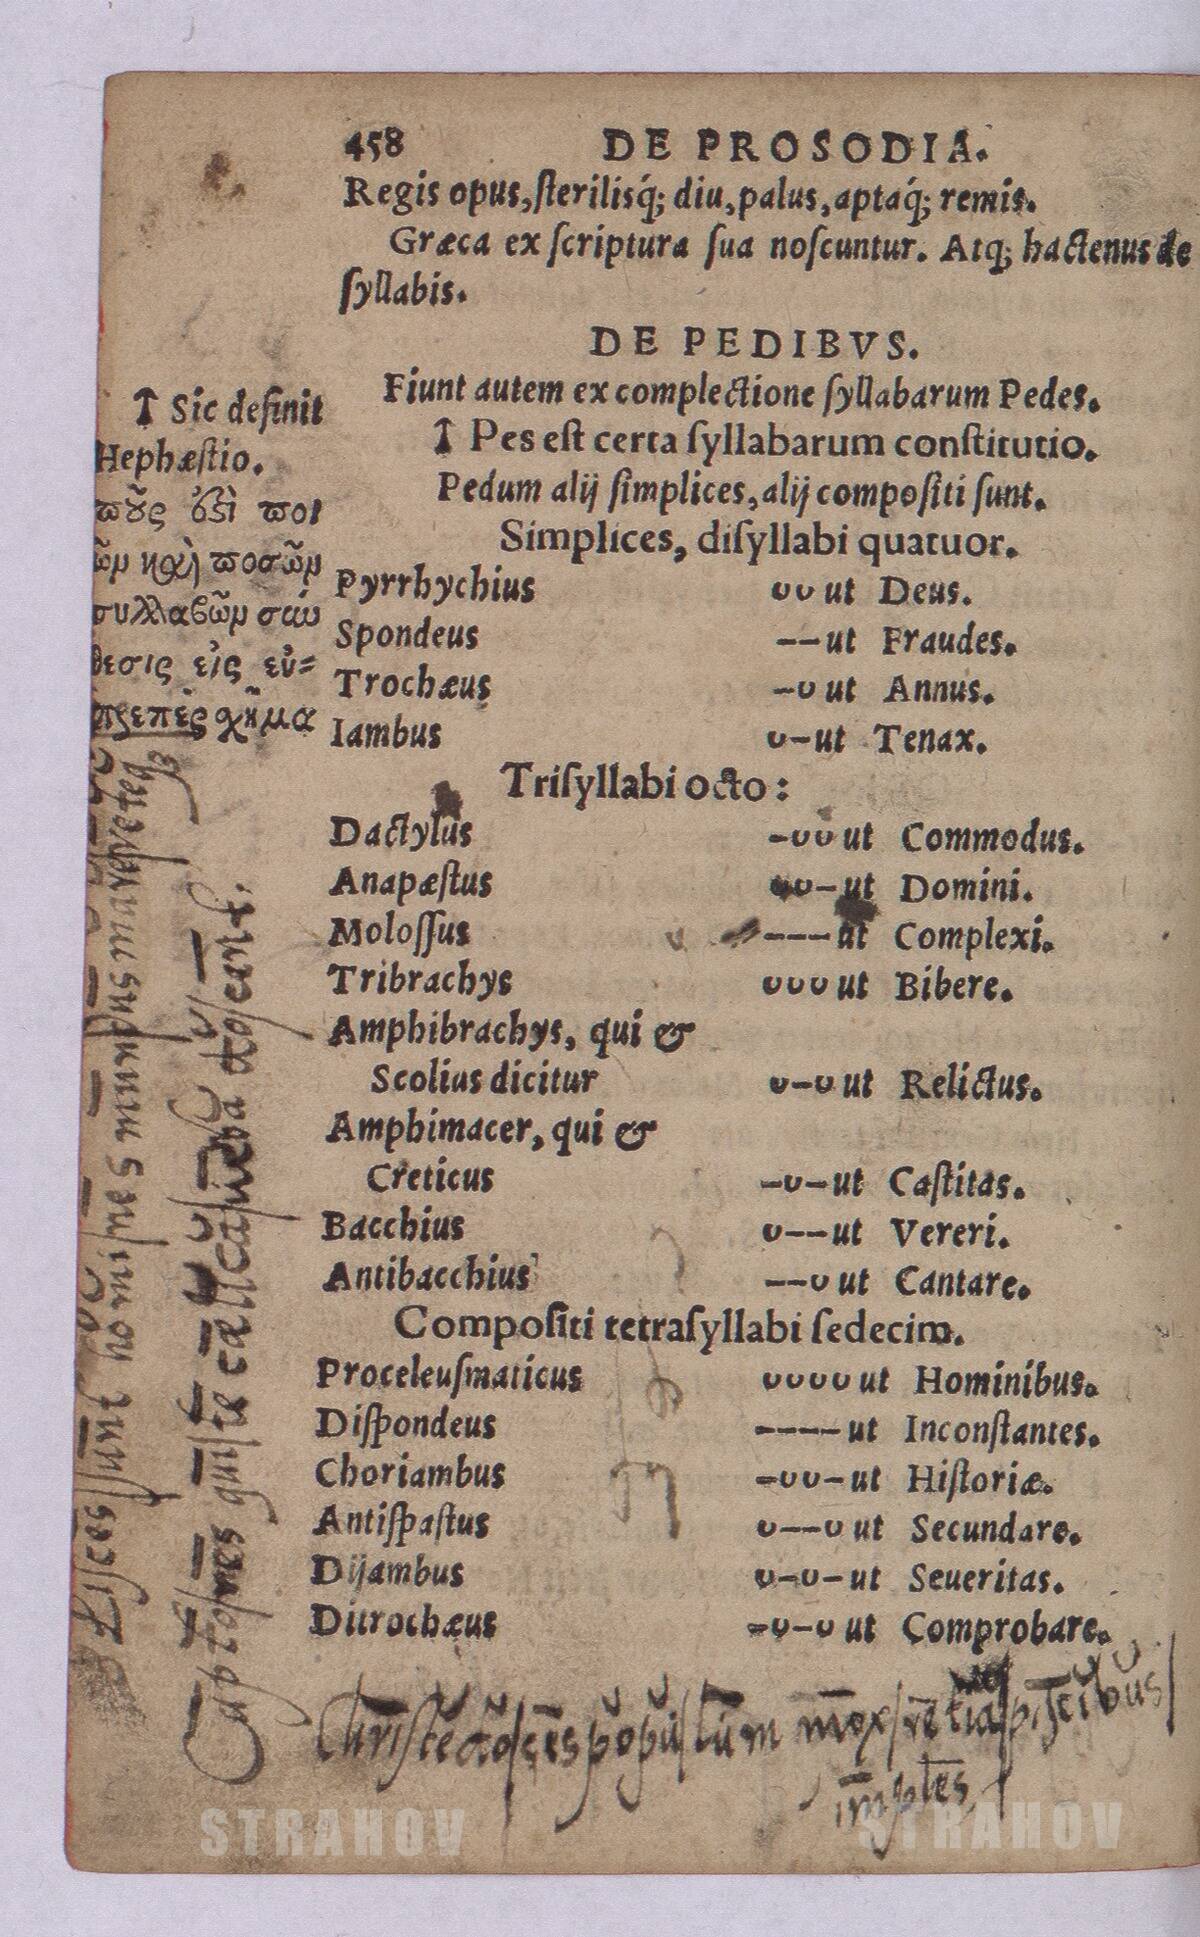 458 DE PROSODIA.
Regis opus, ſteriliſq́; diu, palus, aptaq́; remis.
Græca ex ſcriptura ſua noſcuntur. Atq; hactenus de
ſyllabis.
DE PEDIBVS.
Fiunt autem ex complectione ſyllabarum Pedes.
↥ Pes eſt certa ſyllabarum conſtitutio.
Pedum alij ſimplices, alij compoſiti ſunt.
Simplices, diſyllabi quatuor.
Pyrrhychius ∪∪ ut Deus.
Spondeus –– ut Fraudes.
Trochæus –∪ ut Annus.
Iambus ∪– ut Tenax.
Triſyllabi octo:
Dactylus –∪∪ ut Commodus.
Anapæſtus ∪∪– ut Domini.
Moloſſus ––– ut Complexi.
Tribrachys ∪∪∪ ut Bibere.
Amphibrachys, qui &
Scolius dicitur ∪–∪ ut Relictus.
Amphimacer, qui &
Creticus –∪– ut Caſtitas.
Bacchius ∪–– ut Vereri.
Antibacchius ––∪ ut Cantare.
Compoſiti tetraſyllabi ſedecim.
Proceleuſmaticus ∪∪∪∪ ut Hominibus.
Diſpondeus –––– ut Inconſtantes.
Choriambus –∪∪– ut Hiſtoriæ.
Antiſpaſtus ∪––∪ ut Secundare.
Dijambus ∪–∪– ut Seueritas.
Ditrochæus –∪–∪ ut Comprobare.
↥ Sic definit
Hephæſtio.
ποῦς ἐϛὶ ποι
ῶν καὶ ποσῶν
συλλαβῶν σύν
θεσις εἰς εὐ=
πρεπὲς χῆμα
piſces ſunt homines mundus mare
Captores quiſte cælica verba doceant.
Chriſte doces populum mox retia piſcibus
imples
STRAHOV
STRAHOV